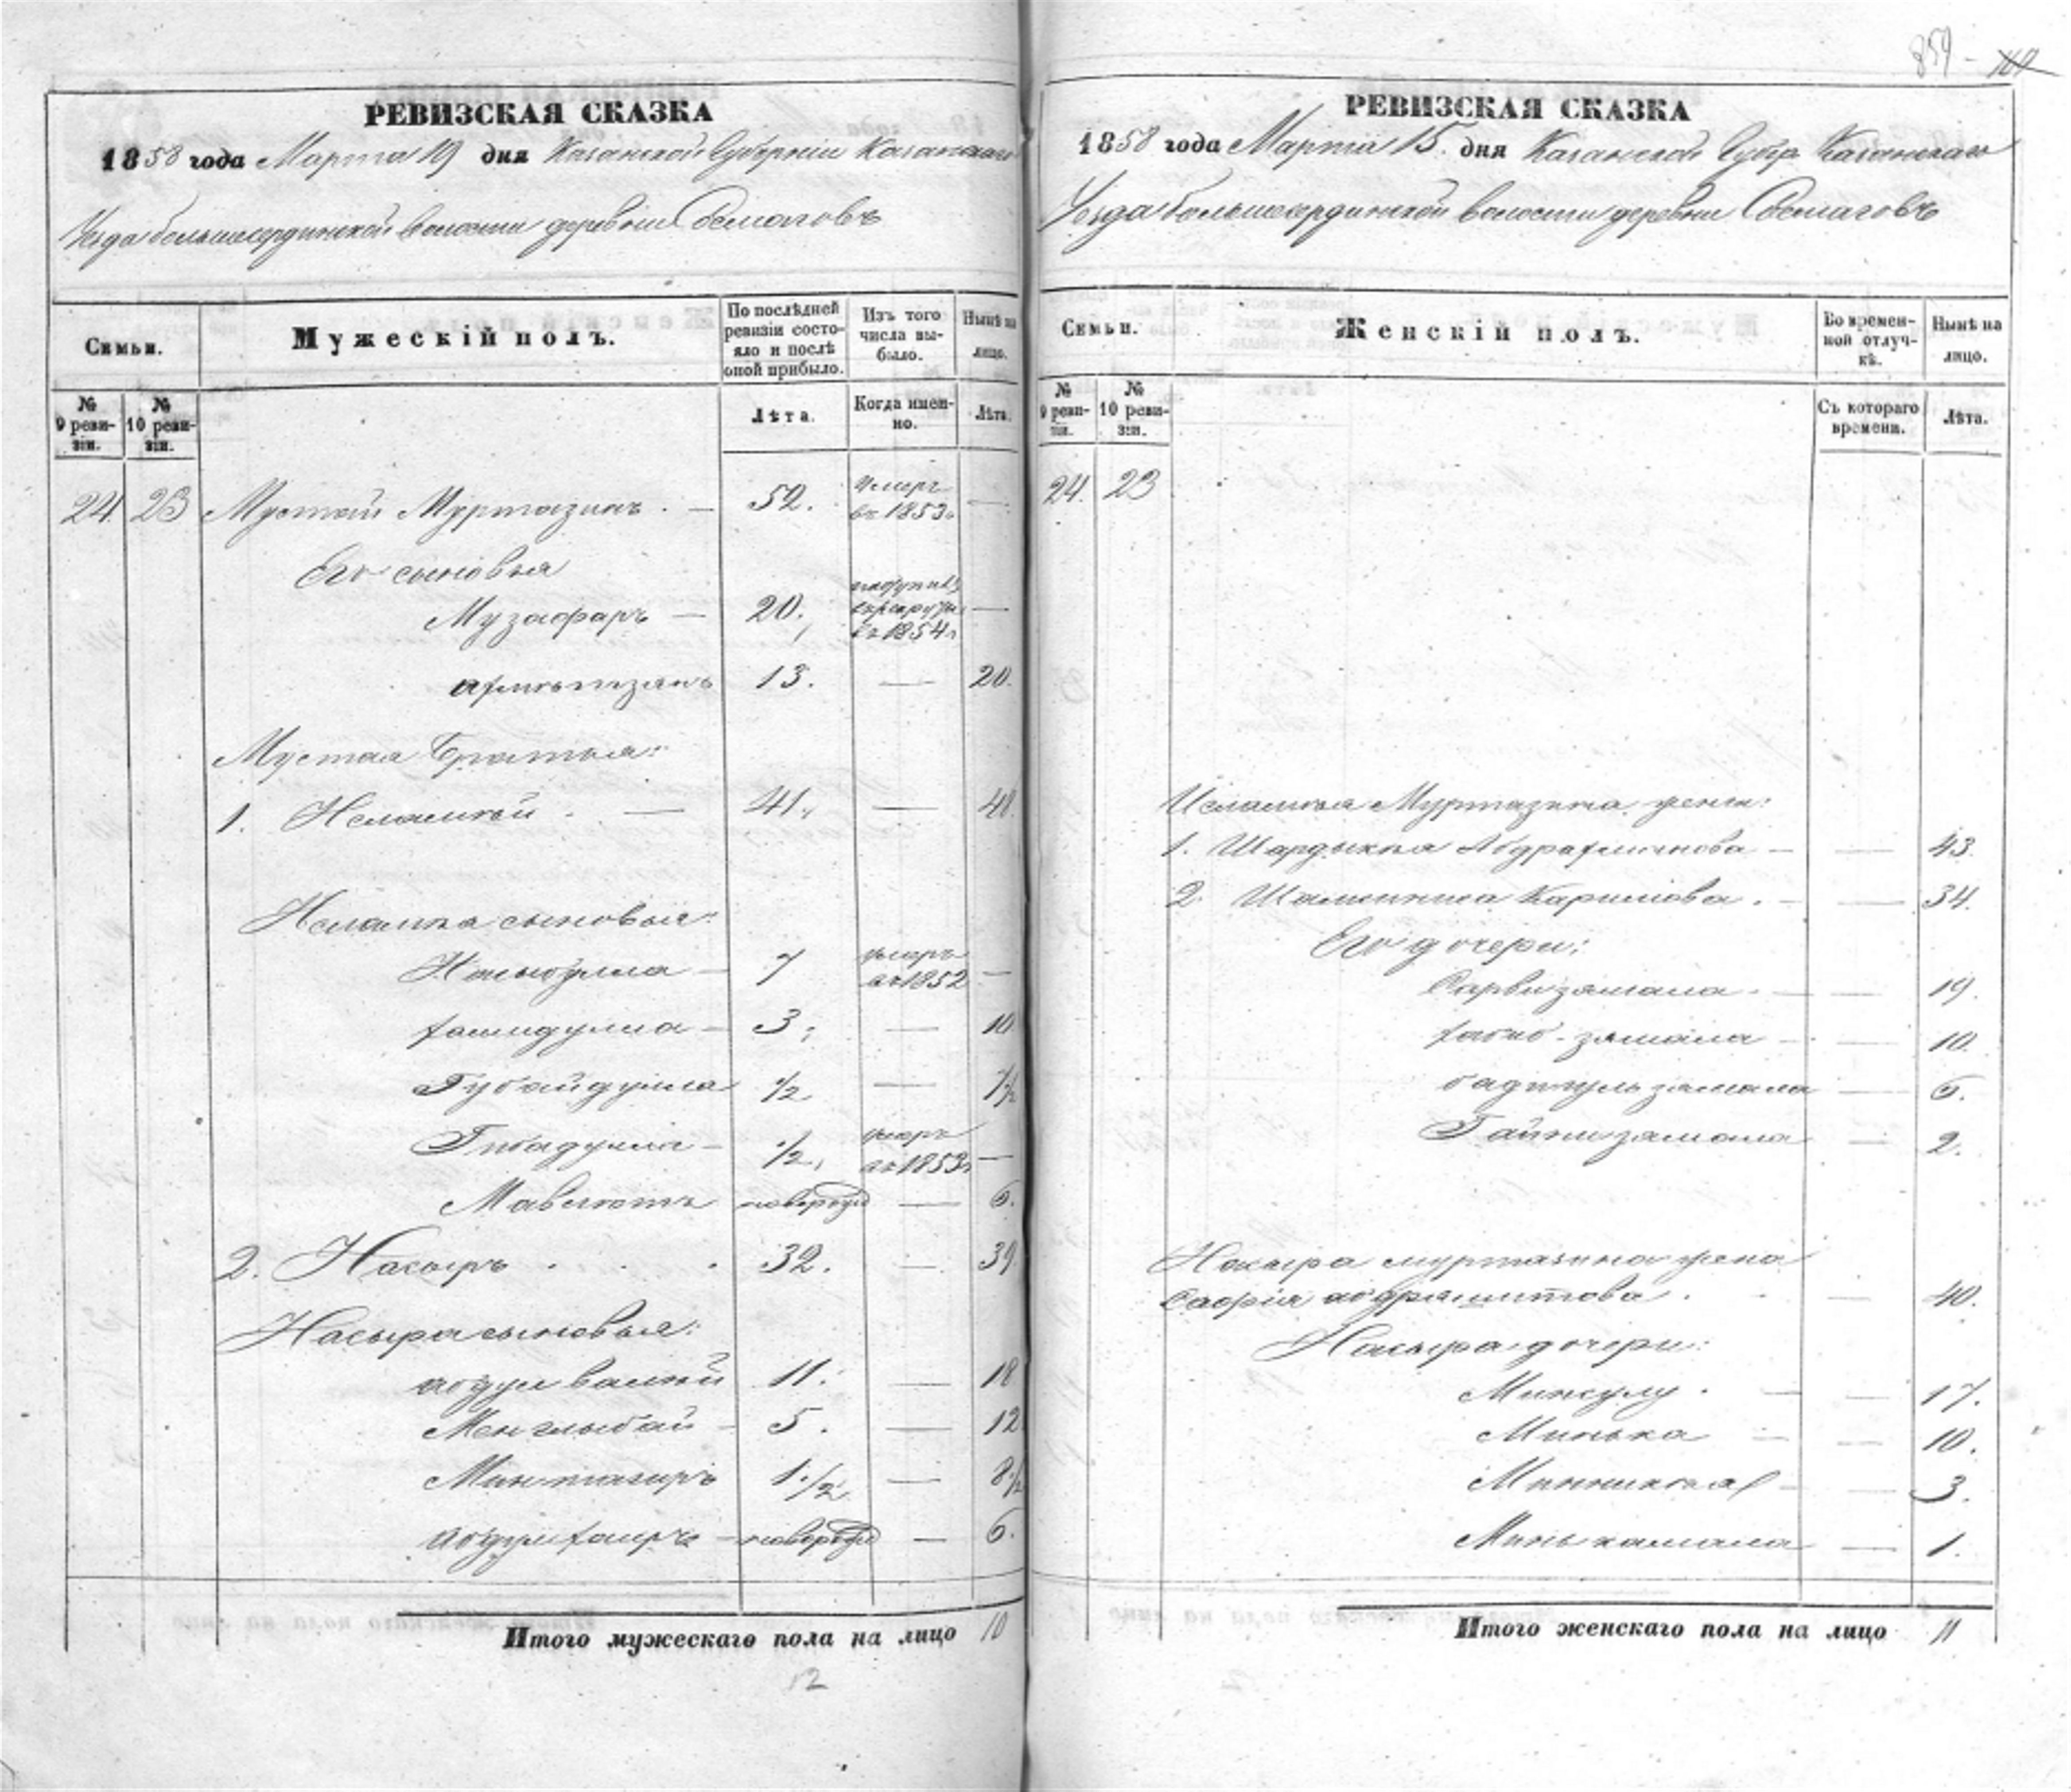 854 -
РЕВИЗСКАЯ СКАЗКА
1858 года Марта 19 дня Казанской Губерніи Казанскаго
Уезда большесердинской волости деревни
Семьи.
Мужескій полъ.
По послѣдней
ревизіи состо-
яло и послѣ
оной прибыло.
Изъ того
числа вы-
было.
Нынѣ на
лицо.
№
9 реви-
зіи.
№
10 реви-
зіи.
Лѣта.
Когда имен-
но.
Лѣта.
24. 23 Мустай Муртазинъ. — 52. умеръ въ 1853г —
Его сыновья
Музафаръ — 20. въ рекруты въ 1854г —
Ахметзянъ 13. — 20.
Мустая братья:
1. Исламкѣй . — 41. — 48.
Исламкѣя сыновья:
7 умеръ въ 1852 —
Хамидулла — 3. — 10
Губайдулла 1/2 — 7 1/2
Гибадулла — 1/2. умеръ въ 1853г —
Мавлютъ новорожд — 6.
2. Насыръ . . . 32. — 39
Насыра сыновья:
абдулвалѣй 11. — 18
Менглыбай — 5. — 12
Минтагиръ 1 1/2 — 8 1/2
абдулхаиръ — новорожд — 6.
Итого мужескаго пола на лицо 10
12
РЕВИЗСКАЯ СКАЗКА
1858 года Марта 15. дня Казанской Губер Казанскаго
Уезда большесердинской волости деревни
Семьи.
Женскій полъ.
Во времен-
ной отлуч-
кѣ.
Нынѣ на
лицо.
№
9 реви-
зіи.
№
10 реви-
зіи.
Съ котораго
времени.
Лѣта.
24. 23
Исламкѣя Муртазина жены:
1. Абдрахманова — — 43.
2. Каримова . — — 34.
Его дочери:
Сарвизямала . — — 19.
Хабиб-зямала — — 10.
бадигульзямала — 6.
Гайнизямала — 2.
Насыра муртазина жена
Сафія абдрашитова . — 40.
Насыра дочери:
Минсулу . — — 17.
Минька — — 10.
— 3.
Минькамала — 1.
Итого женскаго пола на лицо 11